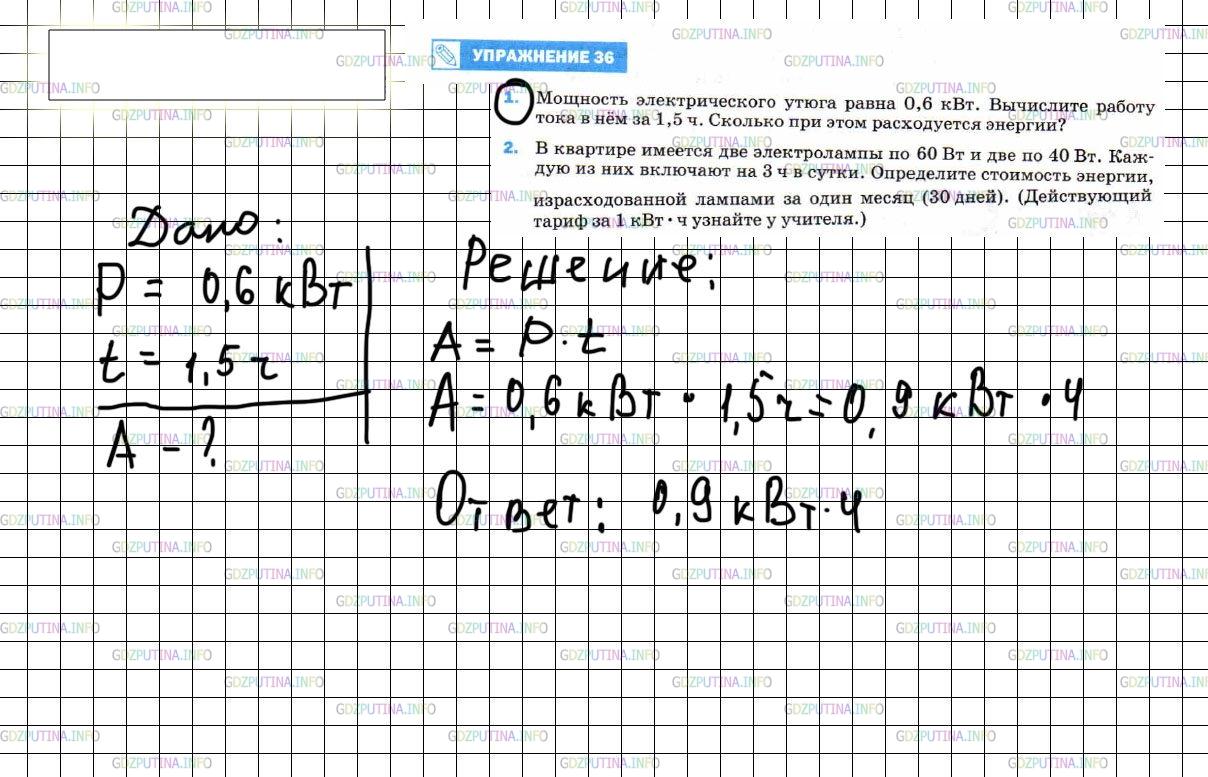 УПРАЖНЕНИЕ 36
1. Мощность электрического утюга равна 0,6 кВт. Вычислите работу
тока в нём за 1,5 ч. Сколько при этом расходуется энергии?
2. В квартире имеется две электролампы по 60 Вт и две по 40 Вт. Каж-
дую из них включают на 3 ч в сутки. Определите стоимость энергии,
израсходованной лампами за один месяц (30 дней). (Действующий
тариф за 1 кВт · ч узнайте у учителя.)
Дано:
P = 0,6 кВт
t = 1,5 ч
A - ?
Решение:
A = P · t
A = 0,6 кВт · 1,5 ч = 0,9 кВт · ч
Ответ: 0,9 кВт · ч
GDZPUTINA.INFO